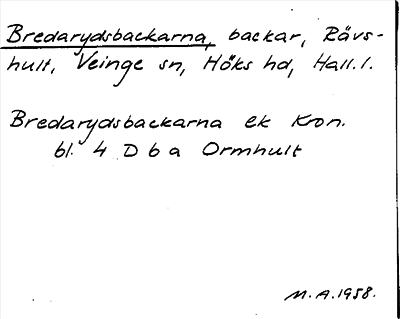 Bredarydsbackarna, backar, Rävs-
hult, Veinge sn, Höks hd, Hall.l.
Bredarydsbackarna ek Kron.
bl. 4 D 6 a Ormhult
M.A.1958.